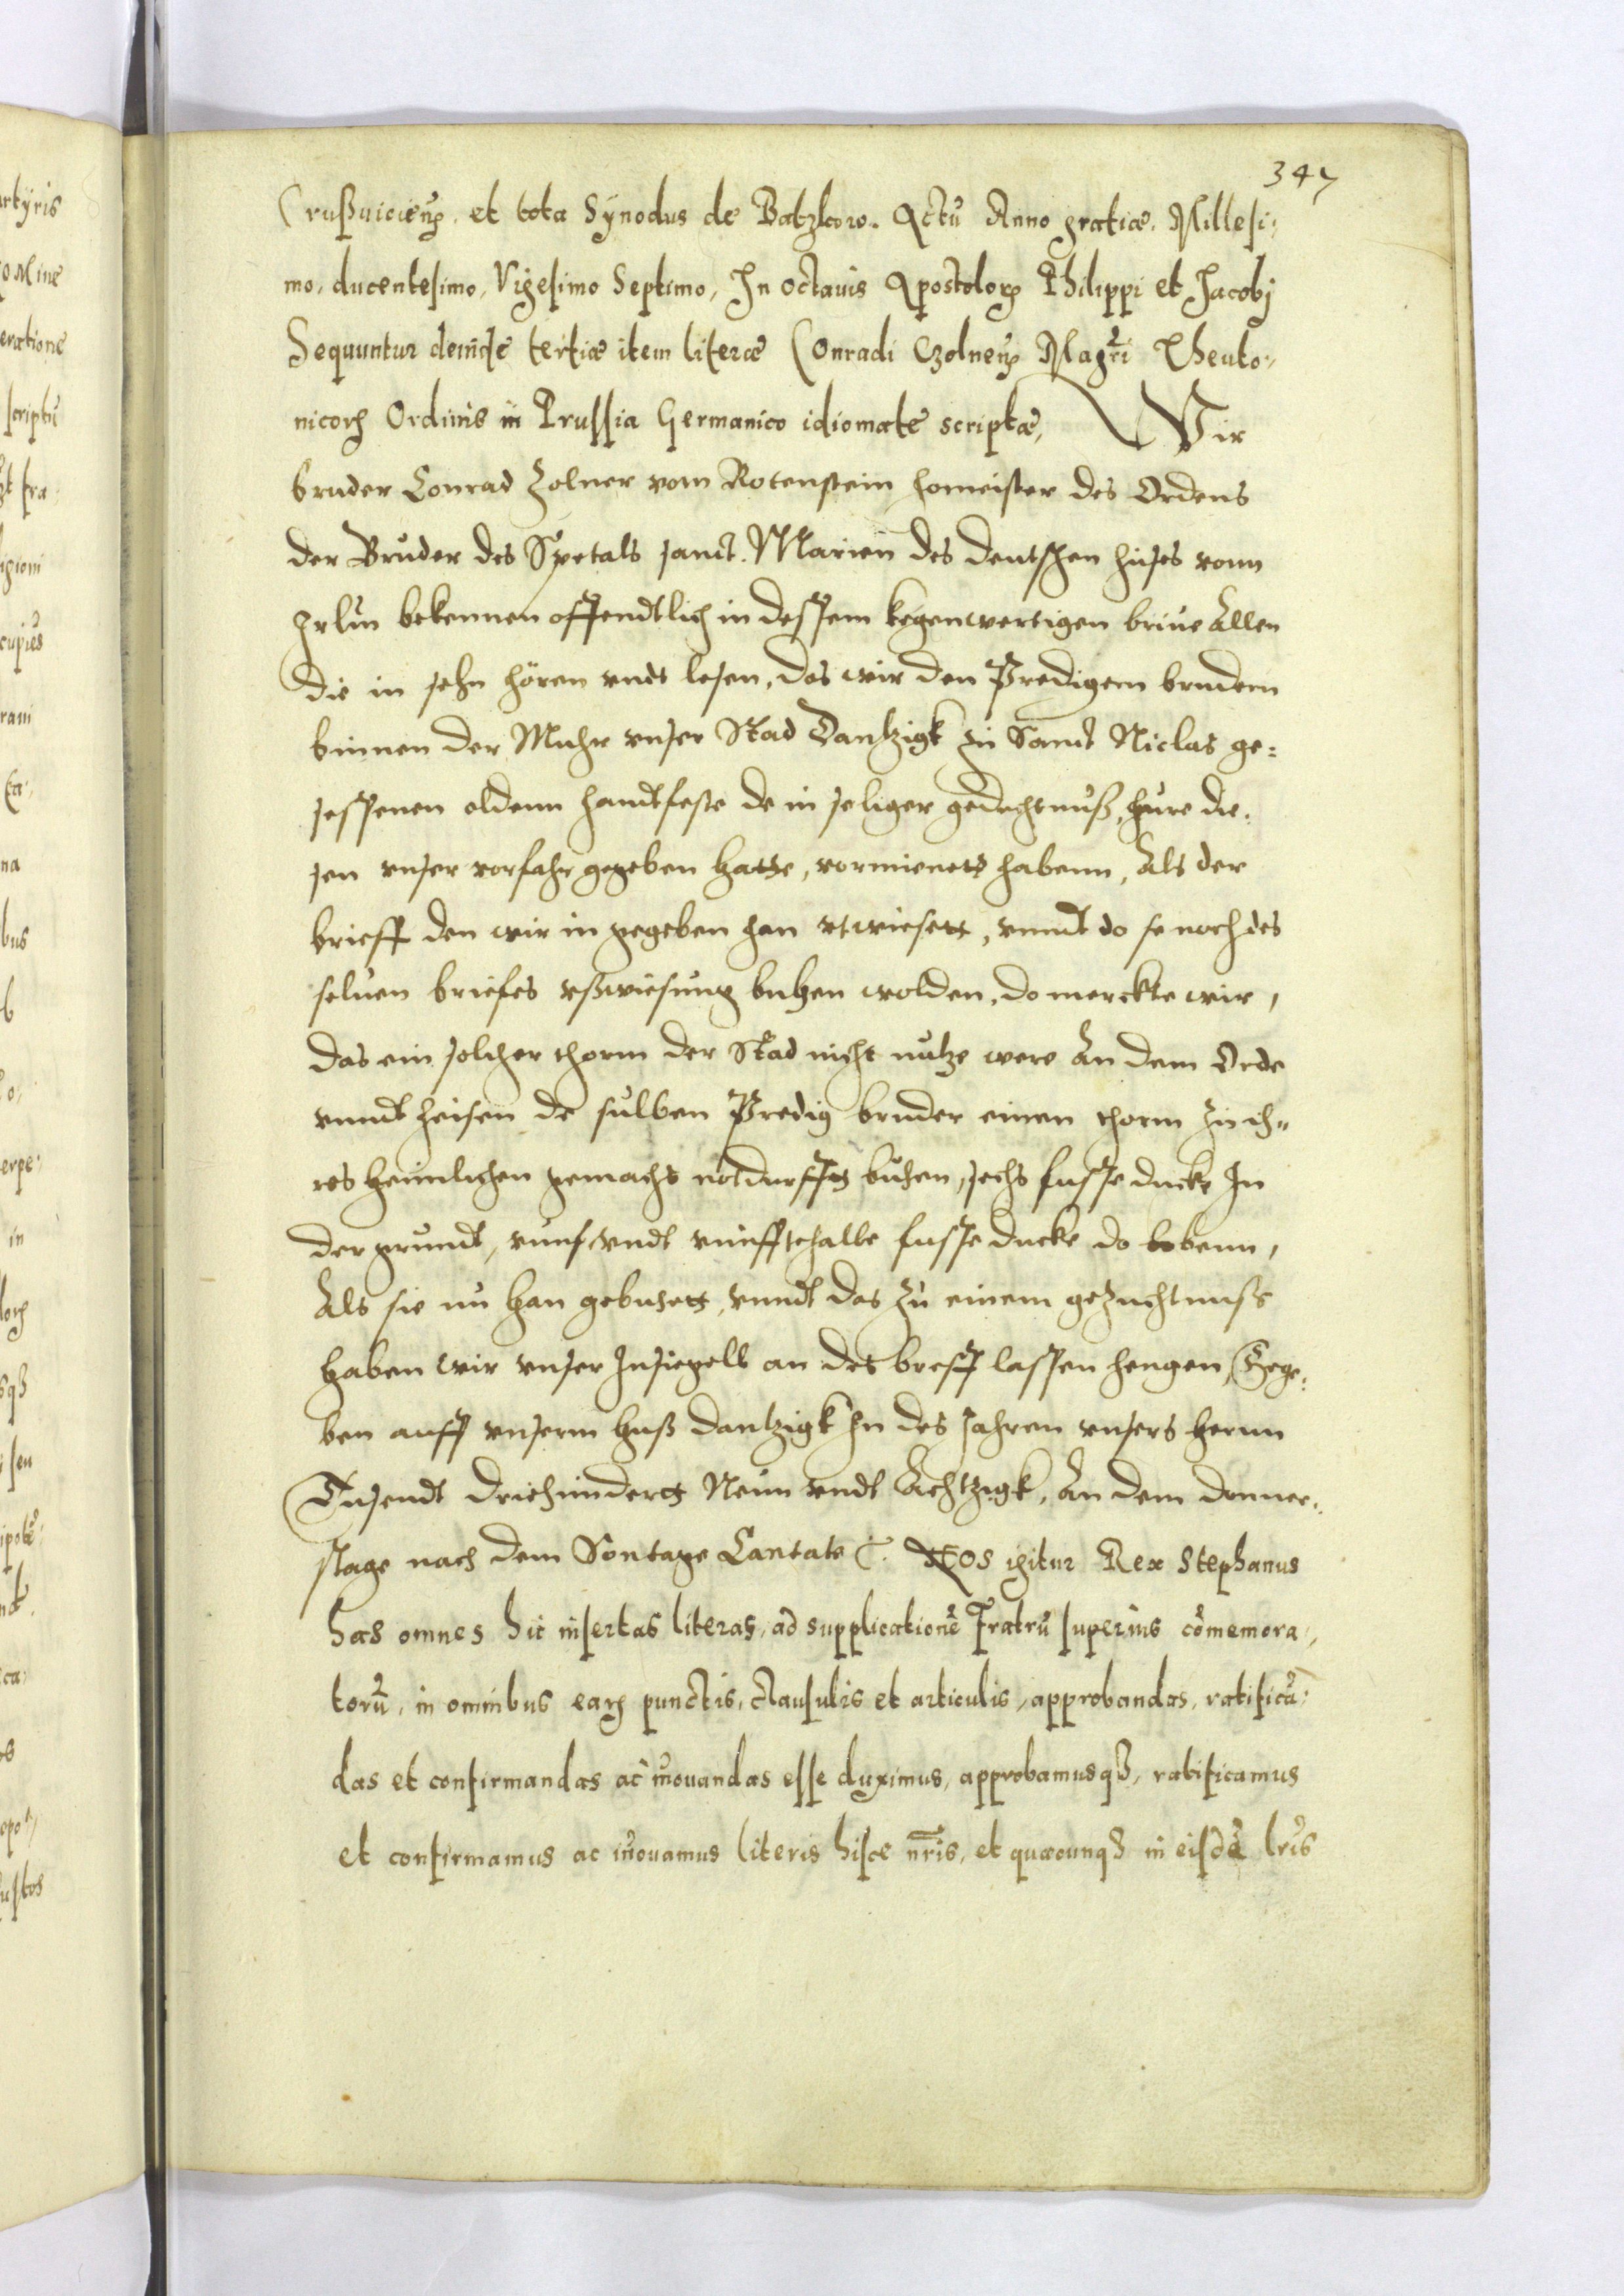 347
Crußuicieñ. et tota Synodus de Batzkow. Actũ Anno gratiæ. Millesi-
mo, ducentesimo, Vigesimo Septimo, In octauis Apostoloꝝ Philippi et Jacobj
Sequuntur deinde tertiæ item literæ Conradi Czolneꝝ Magrĩ Theuto-
nicoꝝ Ordinis in Prussia Germanico idiomate scriptæ, Wir
bruder Conrad Zolner vom Rotenstein homeister des Ordens
der Bruder des Spetals sanct. Marien des deutschen huses vonn
Jrlm bekennen offendtlich in dessem kegenwertigen briue Allen
die in sehn hören undt lesen, das wir den Predigern brudern
binnen der Muhr vnser Stad Dantzigk zu Sanct Niclas ge=
sessenen oldenn handtfeste de in seliger gedechtnuß,
sen vnser vorfahr gegeben hatte, vornieuert habenn, Als der
brieff den wir in gegeben han vtwiesett, vnndt do se noch des
seluen briefes vßwiesung buhen wolden, do merckte wir,
das ein solcher thorm der Stad nicht nutze were An dem Orde
vnndt heisen de sulben Predig bruder einen thorm zu ih-
res heimlichen gemachs notdurfft buhen, sechs fusse ducke In
der grundt, vunf vndt vunfftehalbe fusse ducke do bobenn,
Als sie nu han gebuhett, vnndt das zu einem gezuchtnuß
haben wir vnser Insiegell an des breff lassen hengen, Gege-
ben auff vnserm huß dantzigk In des Jahren vnsers herrn
Tusendt driehundertt Neun vndt Achtzigk, An dem donner-
stage nach dem Sontage Cantate &. Nos igitur Rex Stephanus
has omnes hic insertas literas, ad supplicationẽ Fratrũ superius cõmemora-
torũ, in omnibus eaꝝ punctis, clausulis et articulis, approbandas, ratificã-
das et confirmandas ac ĩnouandas esse duximus, approbamusqꝫ, ratificamus
et confirmamus ac ĩnouamus literis hisce nr̃is, et quæcunqꝫ in eisdẽ lrĩs